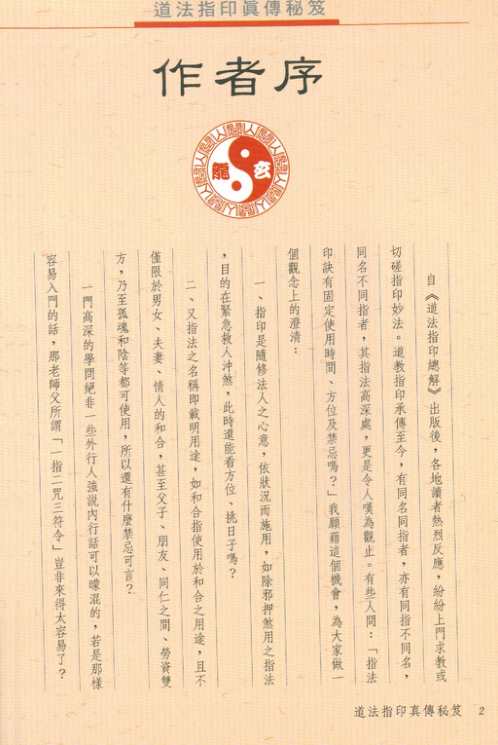 道法指印眞傳秘笈
作者序
玄
自《道法指印總解》出版後，各地讀者熱烈反應，紛紛上門求教或
切磋指印妙法。道教指印承傳至今，有同名同指者，亦有同指不同名，
同名不同指者，其指法高深處，更是令人嘆為觀止。有些人問：「指法
印訣有固定使用時間、方位及禁忌嗎？」我願藉這個機會，為大家做一
個觀念上的澄清：
一、指印是隨修法人之心意，依狀況而施用，如除邪押煞用之指法
，目的在緊急救人沖煞，此時還能看方位、挑日子嗎？
二、又指法之名稱即載明用途，如和合指使用於和合之用途，且不
僅限於男女、夫妻、情人的和合，甚至父子、朋友、同仁之間、勞資雙
方，乃至孤魂和陰等都可使用，所以還有什麼禁忌可言？
一門高深的學問絕非一些外行人強說內行話可以矇混的，若是那樣
容易入門的話，那老師父所謂「一指二咒三符令」豈非來得太容易了？
道法指印真傳秘笈 2